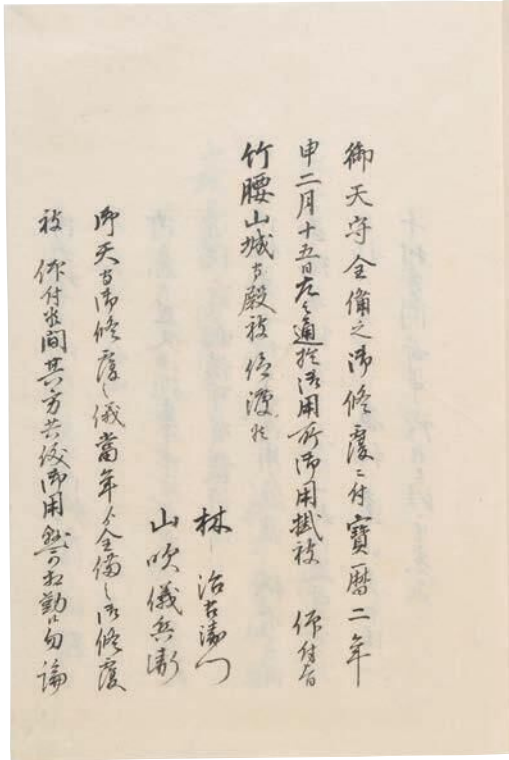 御天守全備之御修覆ニ付寳暦二年
申二月十五日左之通於御用所御用掛被 仰付旨
竹腰山城守殿被仰渡候
林 治右衛門
山吹儀兵衛
御天守御修覆之儀當年ゟ全備之御修覆
被 仰付候間其方共儀御用懸可相勤候勿論